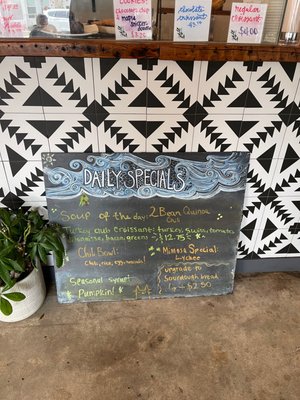 Cookies
chocolate chip
$3
chocolate
croissant
regular
croissant
$4.00
DAILY SPECIALS
Soup of the day: 2 Bean Quinoa
Turkey club croissant: turkey, swiss, tomato,
bacon, greens - $12.75
Chili Bowl:
Mimosa Special:
Lychee
upgrade to
Sourdough bread
$2.50
Seasonal syrup:
Pumpkin!